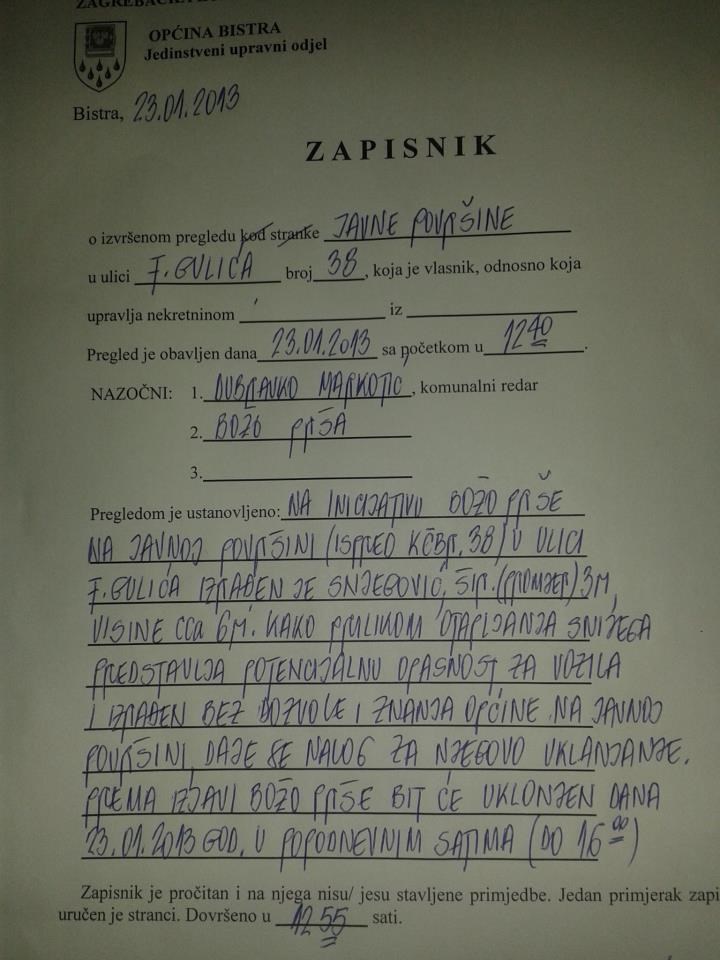 OPĆINA BISTRA
Jedinstveni upravni odjel
Bistra, 23.01.2013
ZAPISNIK
o izvršenom pregledu kod stranke JAVNE POVRŠINE
u ulici F. GULIĆA broj 38, koja je vlasnik, odnosno koja
upravlja nekretninom iz
Pregled je obavljen dana 23.01.2013 sa početkom u 12 40.
NAZOČNI: 1. DUBRAVKO MARKOTIĆ, komunalni redar
2. BOŽO PRŠA
3.
Pregledom je ustanovljeno: NA INICIJATIVU BOŽO PRŠE
NA JAVNOJ POVRŠINI (ISPRED KČBR. 38) U ULICI
F. GULIĆA IZRAĐEN JE SNJEGOVIĆ, ŠIR. (PROMJER) 3M,
VISINE CCA 6M. KAKO PRILIKOM OTAPLJANJA SNIJEGA
PREDSTAVLJA POTENCIJALNU OPASNOST ZA VOZILA
I IZRAĐEN BEZ DOZVOLE I ZNANJA OPĆINE NA JAVNOJ
POVRŠINI, DAJE SE NALOG ZA NJEGOVO UKLANJANJE.
PREMA IZJAVI BOŽO PRŠE BIT ĆE UKLONJEN DANA
23.01.2013 GOD. U POPODNEVNIM SATIMA (DO 16 00)
Zapisnik je pročitan i na njega nisu/ jesu stavljene primjedbe. Jedan primjerak zapi
uručen je stranci. Dovršeno u 12 55 sati.